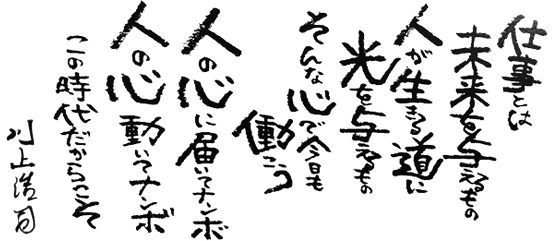 仕事とは
未来を与えるもの
人が生きる道に
光を与えるもの
そんな心で今日も
働こう
人の心に届いてナンボ
人の心動いてナンボ
この時代だからこそ
川上浩司